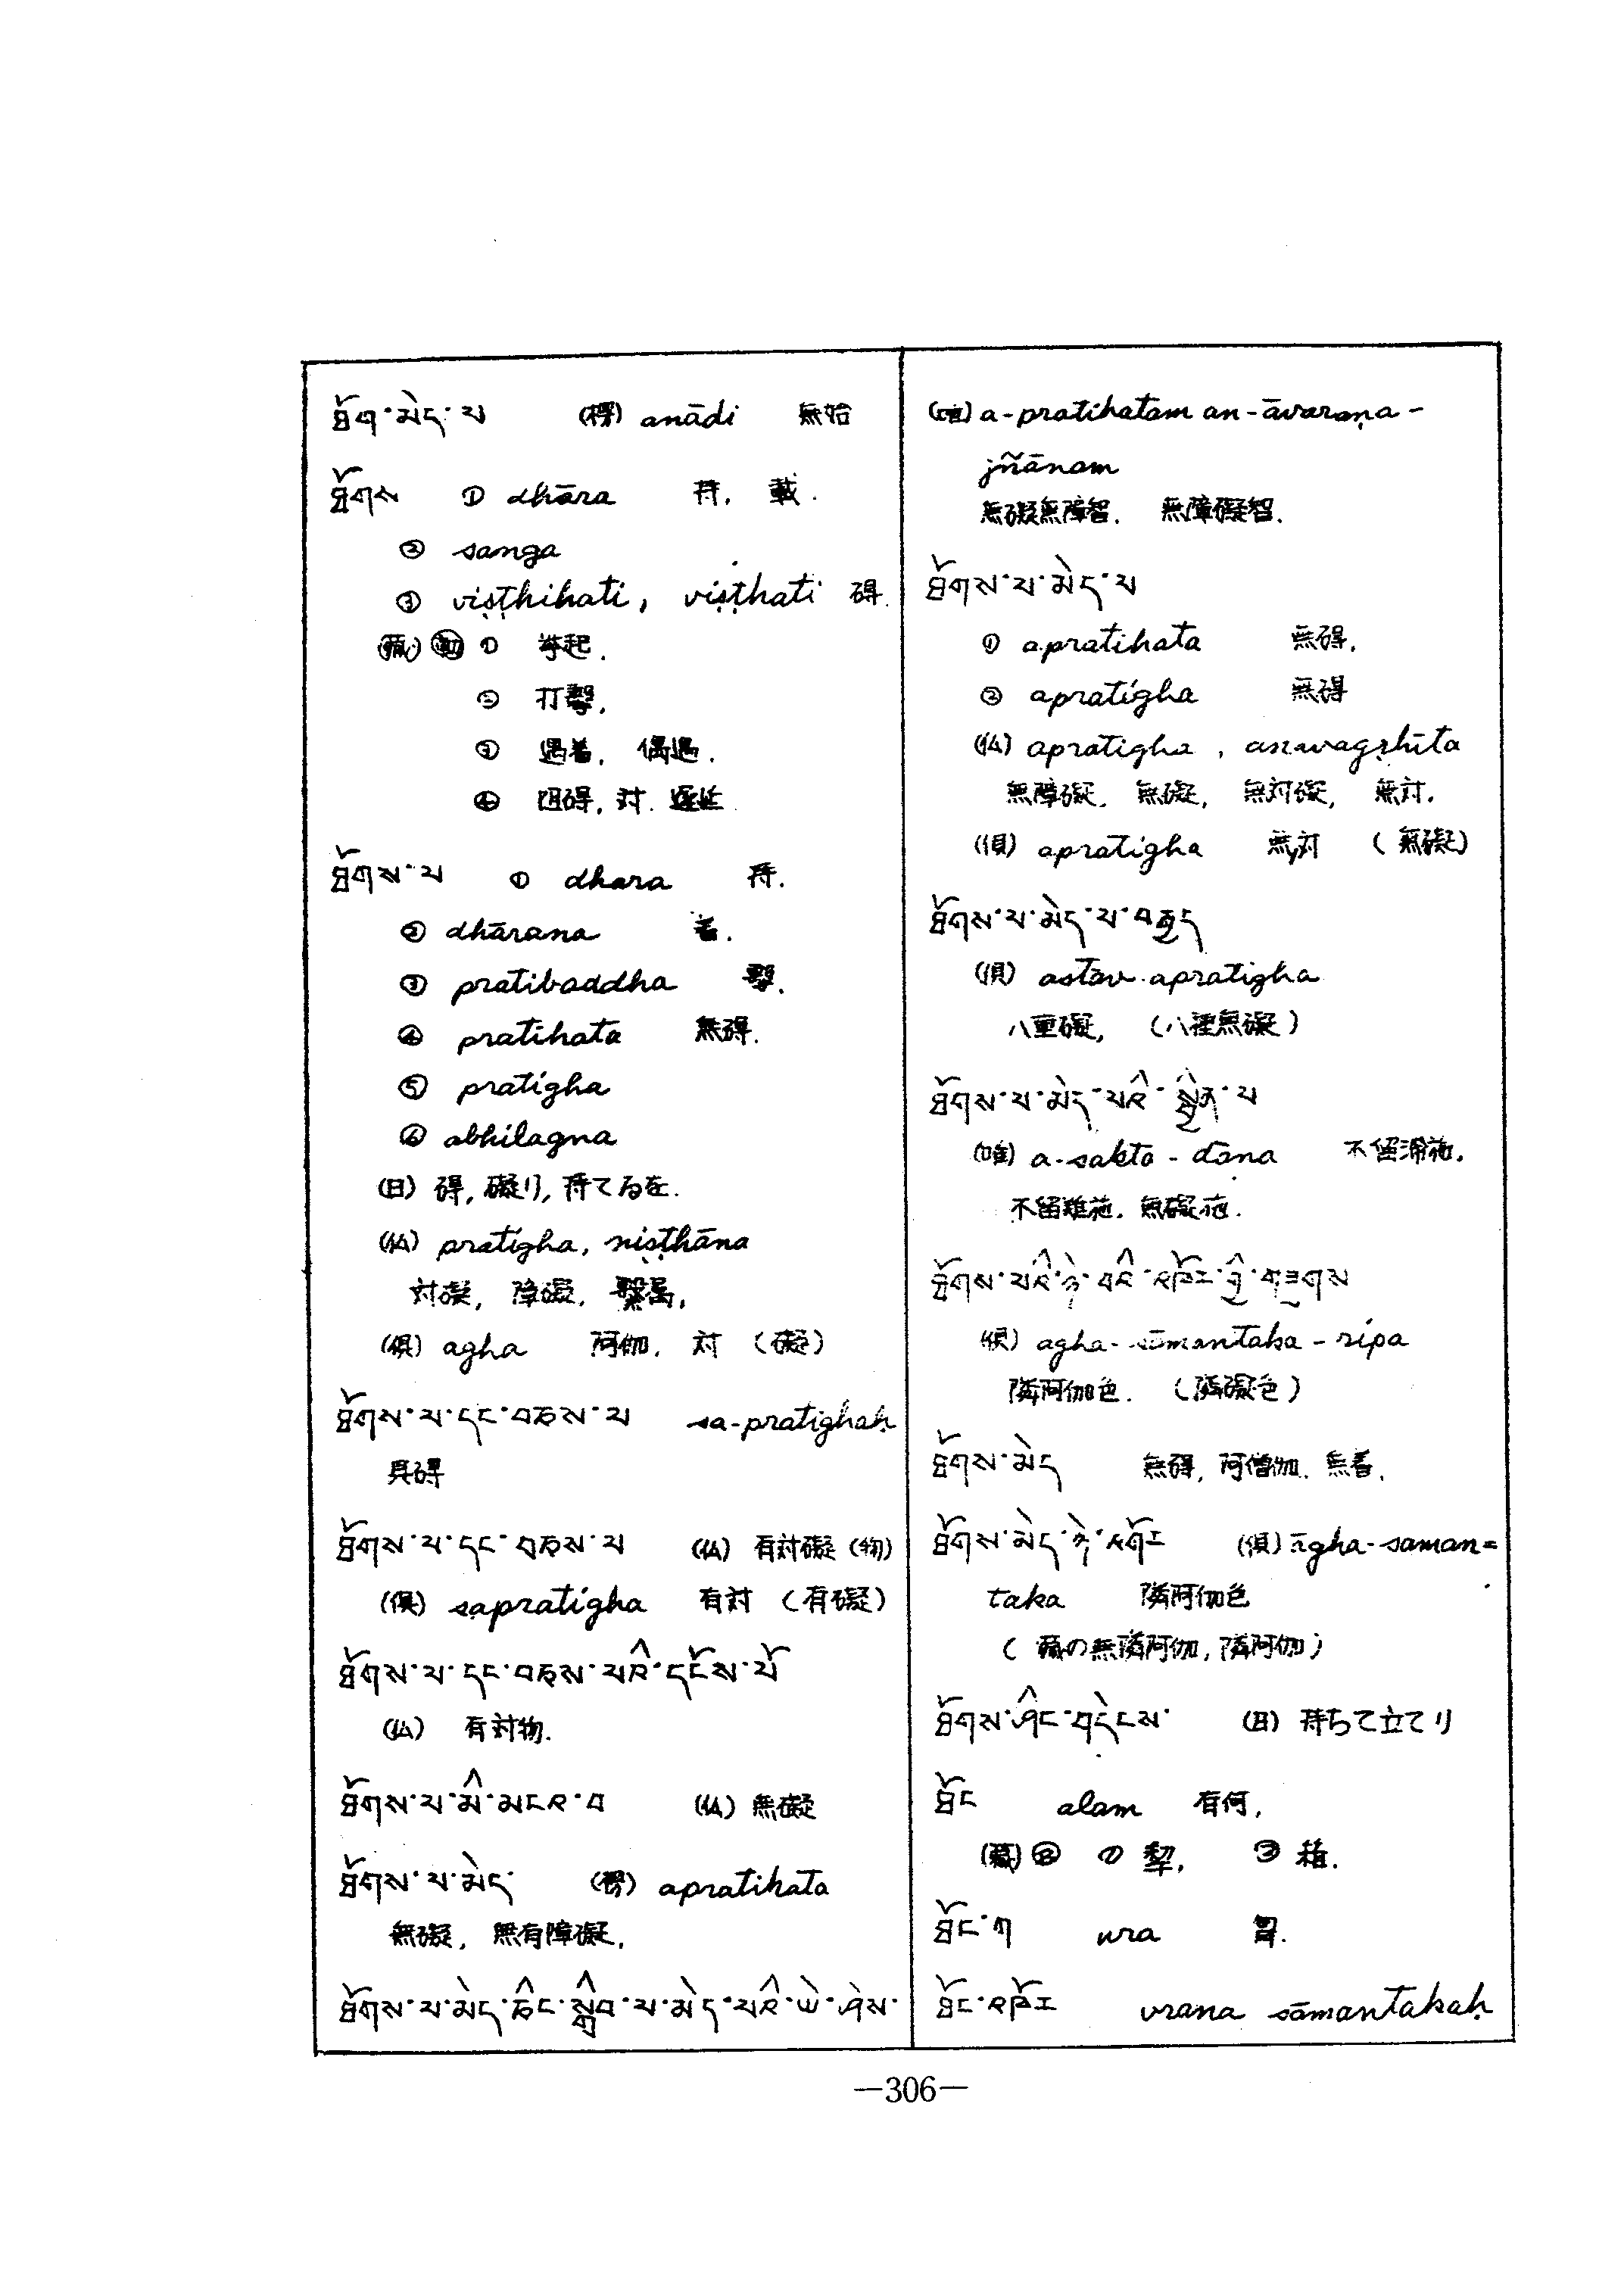 ཐོག་མེད་པ (楞) anādi 無始
ཐོགས ① dhāra 持, 載.
② sanga
③ viṣṭhihati, viṣṭhati 碍.
(蔵) 動 ① 挙起.
② 打撃,
③ 遇着, 偶遇.
④ 阻碍, 対. 遅延
ཐོགས་པ ① dhara 持.
② dhārana 着.
③ pratibaddha 繋.
④ pratihata 無碍.
⑤ pratigha
⑥ abhilagna
(日) 碍, 礙り, 持てゐを.
(仏) pratigha, niṣṭhāna
対礙, 障礙, 繋属,
(倶) agha 阿伽, 対 (礙)
ཐོགས་པ་དང་བཅས་པ sa-pratighaḥ
具碍
ཐོགས་པ་དང་བཅས་པ (仏) 有対礙 (物)
(倶) sapratigha 有対 (有礙)
ཐོགས་པ་དང་བཅས་པའི་དངོས་པོ
(仏) 有対物.
ཐོགས་པ་མི་མངའ་བ (仏) 無礙
ཐོགས་པ་མེད (楞) apratihata
無礙, 無有障礙,
ཐོགས་པ་མེད་ཅིང་སྒྲིབ་པ་མེད་པའི་ཡེ་ཤེས་
(唯) a-pratihatam an-āvaraṇa-
jñānam
無礙無障智. 無障礙智.
ཐོགས་པ་མེད་པ
① apratihata 無碍,
② apratigha 無碍
(仏) apratigha, anavagṛhīta
無障礙, 無礙, 無対礙, 無対.
(倶) apratigha 無対 (無礙)
ཐོགས་པ་མེད་པ་བརྒྱད
(倶) astāv apratigha
八重礙, (八種無礙)
ཐོགས་པ་མེད་པའི་སྦྱིན་པ
(唯) a-sakta-dāna 不留滞施.
不留難施. 無礙施.
ཐོགས་པའི་ཉེ་བའི་འཁོར་གྱི་གཟུགས
(倶) agha-sāmantaka-ripa
隣阿伽色. (隣礙色)
ཐོགས་མེད 無碍, 阿僧伽. 無着.
ཐོགས་མེད་ཉེ་འཁོར (倶) āgha-saman=
taka 隣阿伽色
(蔵の無隣阿伽, 隣阿伽)
ཐོགས་ཤིང་གདེངས་ (日) 持ちて立てり
ཐོང alam 有何,
(蔵) ① 犂, ②
ཐོང་ག ura 胃.
ཐོང་འཁོར vrana sāmantakaḥ
—306—